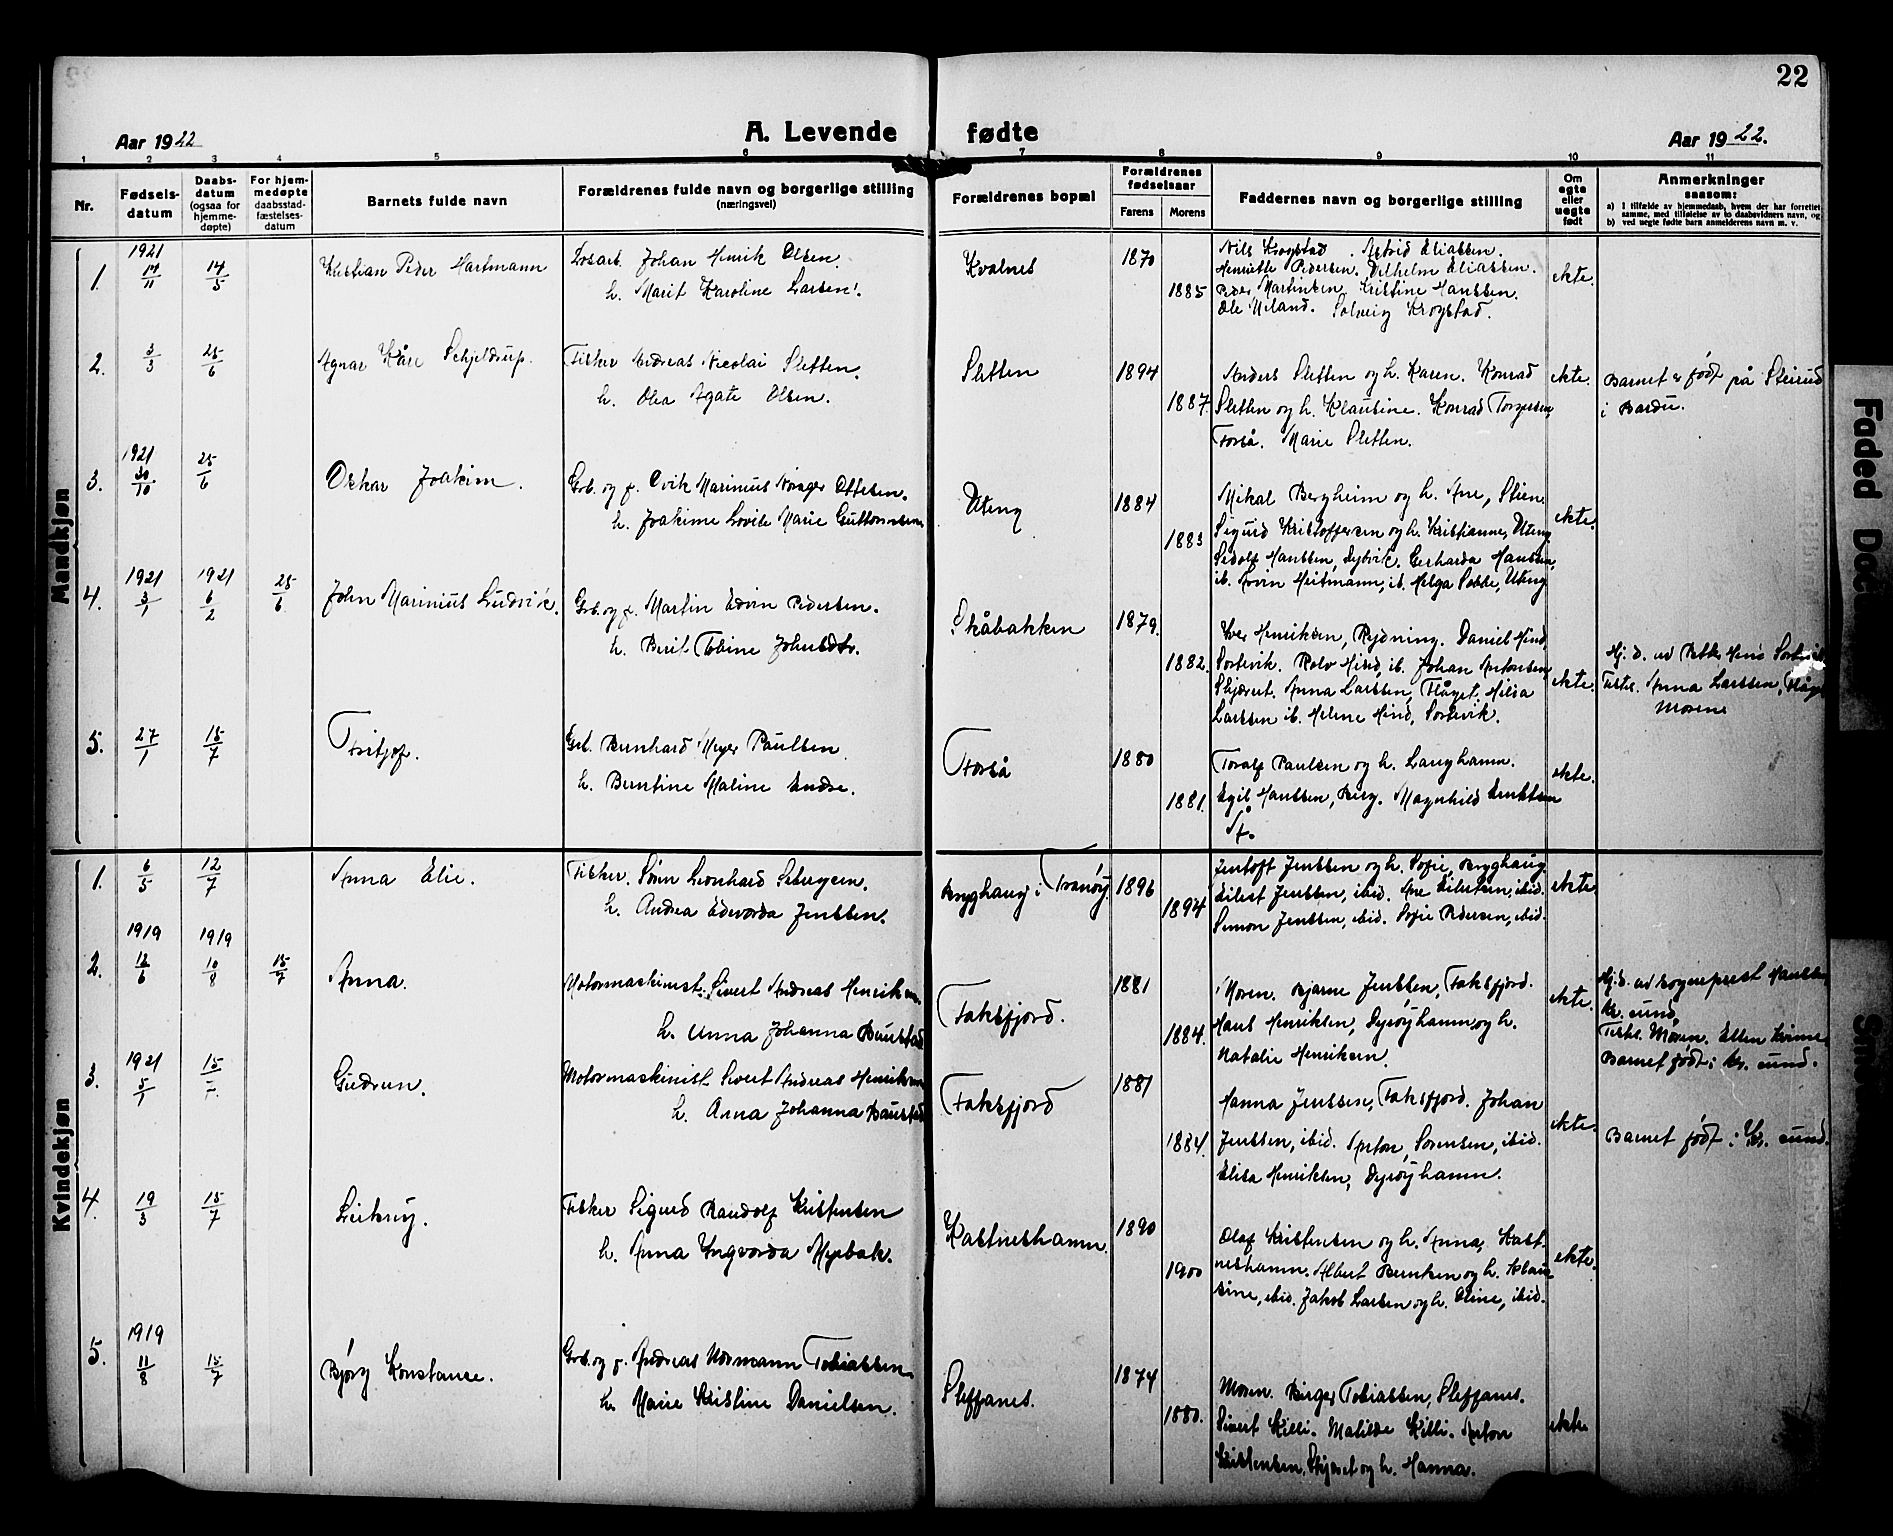 22
Aar 1922
A. Levende fødte
Aar 1922.
1 2 3 4 5 6 7 8 9 10 11
Nr.
Fødsels-
datum
Daabs-
datum
(ogsaa for
hjemme-
døpte)
For hjem-
medøpte
daabsstad-
fæstelses-
datum
Barnets fulde navn
Forældrenes fulde navn og borgerlige stilling
(næringsvei)
Forældrenes bopæl
Forældrenes
fødselsaar
Farens
Morens
Faddernes navn og borgerlige stilling
Om
egte
eller
uegte
født
Anmerkninger
saasom:
a) I tilfælde av hjemmedaab, hvem der har forrettet
samme, med tilføielse av to daabsvidners navn, og
b) ved uegte fødte barn anmelderens navn m. v.
Mandkjøn
1.
1921
14/11
14/5
Kristian Peder Hartmann
Losarb. Johan Henrik Olsen.
h. Marit Karoline Larsen.
Kvalnes
1870
1885
Nils Krogstad. Astrid Eliassen.
Henriette Pedersen. Vilhelm Eliassen.
Peder Martinsen. Kristine Hanssen.
Ole Meland. Solveig Krogstad.
ekte.
2.
3/3
25/6
Agnar Kåre Schjeldrup.
Fisker Andreas Nicolai Sletten.
h. Olea Agate Olsen.
Sletten
1894
1887
Anders Sletten og h. Karen. Konrad
Sletten og h. Klausine. Konrad Torgersen,
Forså. Marie Sletten.
ekte.
Barnet er født på
i Bardu.
3.
1921
30/10
25/6
Oskar Joakim.
Grb. og f. Marinius Ottesen.
h. Joakime Lovise Marie Guttormsen
Uteng
1884
1883
Mikal Bergheim og h. Ane, Stien.
Sigurd Kristoffersen og h. Kristianne, Uteng
Sedolf Hanssen, Dybvik. Gerharda Hanssen,
ib. Arvin Heitmann, ib. Helga Sakke, Uteng
ekte.
4.
1921
3/1
1921
6/2
25/6
John Marinius Ludvik.
Grb. og f. Martin Edvin Pedersen.
h. Berit Tobine Johnsdtr.
Skåbakken
1879.
1882.
Iver Henriksen, Rydning. Daniel Hind,
Sørtevik. Rolv Hind, ib. Johan Antonsen,
Skjæret. Anna Larssen, Flåget. Hilda
Larssen ib. Helene Hind, Sørtevik.
ekte.
Hj. d. ved
Anna Larssen,
Morene
5.
27/1
15/7
Fritjof.
Grb. Bernhard Meyer Paulsen
h. Berntine Maline Andse.
Forså
1880
1881.
Toralf Paulsen og h. Langhamn.
Egil Hanssen, Berg. Magnhild
Å.
ekte.
Kvindekjøn
1.
6/5
12/7
Anna Elie.
Fisker. Søren Leonhard Sebergsen.
h. Andrea Edvarda Jenssen.
Bryghaug i Tranøy
1896
1894
Jentoft Jenssen og h. Sofie, Bryghaug
Jenssen, ibid. Ane ibid.
Simon Jenssen, ibid. Sofie Pedersen, ibid.
ekte
2.
1919
12/6
1919
10/8
15/7
Anna.
Motormaskinist. Sivert Andreas Henriksen
h. Anna Johanna Baustad
Faksfjord.
1881
1884.
Moren. Bjarne Jenssen, Faksfjord.
Hans Henriksen, Dyrøyhamn og h.
Natalie Henriksen
ekte.
Hj. d. ved sogneprest Hanssen,
Kr. sund.
Moren. Ellen
Barnet født i Kr. sund.
3.
1921
5/1
15/7
Gudrun.
Motormaskinist Sivert Andreas Henriksen
h. Anna Johanna Baustad
Faksfjord
1881
1884.
Hanna Jenssen, Faksfjord. Johan
Jenssen, ibid. Anton Sørensen, ibid.
Elisa Henriksen, Dyrøyhamn.
ekte.
Barnet født i Kr. sund.
4.
19/3
15/7
Fisker Sigurd Randolf Kristensen
h. Anna Yngvarda Myrbak.
Kastneshamn.
1890
1900
Olaf Kristensen og h. Anna, Kast-
neshamn. Albert Berntsen og h. Klau-
sine, ibid. Jakob Larsen og h. Oline, ibid.
ekte.
5.
1919
11/8
15/7
Bjørg Konstanse.
Grb. og f. Andreas Normann Tobiassen
h. Marie Kristine Danielsen.
Steffanes.
1874
1880.
Moren. Birger Tobiassen, Steffanes.
Sivert Killi. Matilde Killi. Anton
Kristensen, Skjæret og h. Hanna.
ekte
Faded Doc